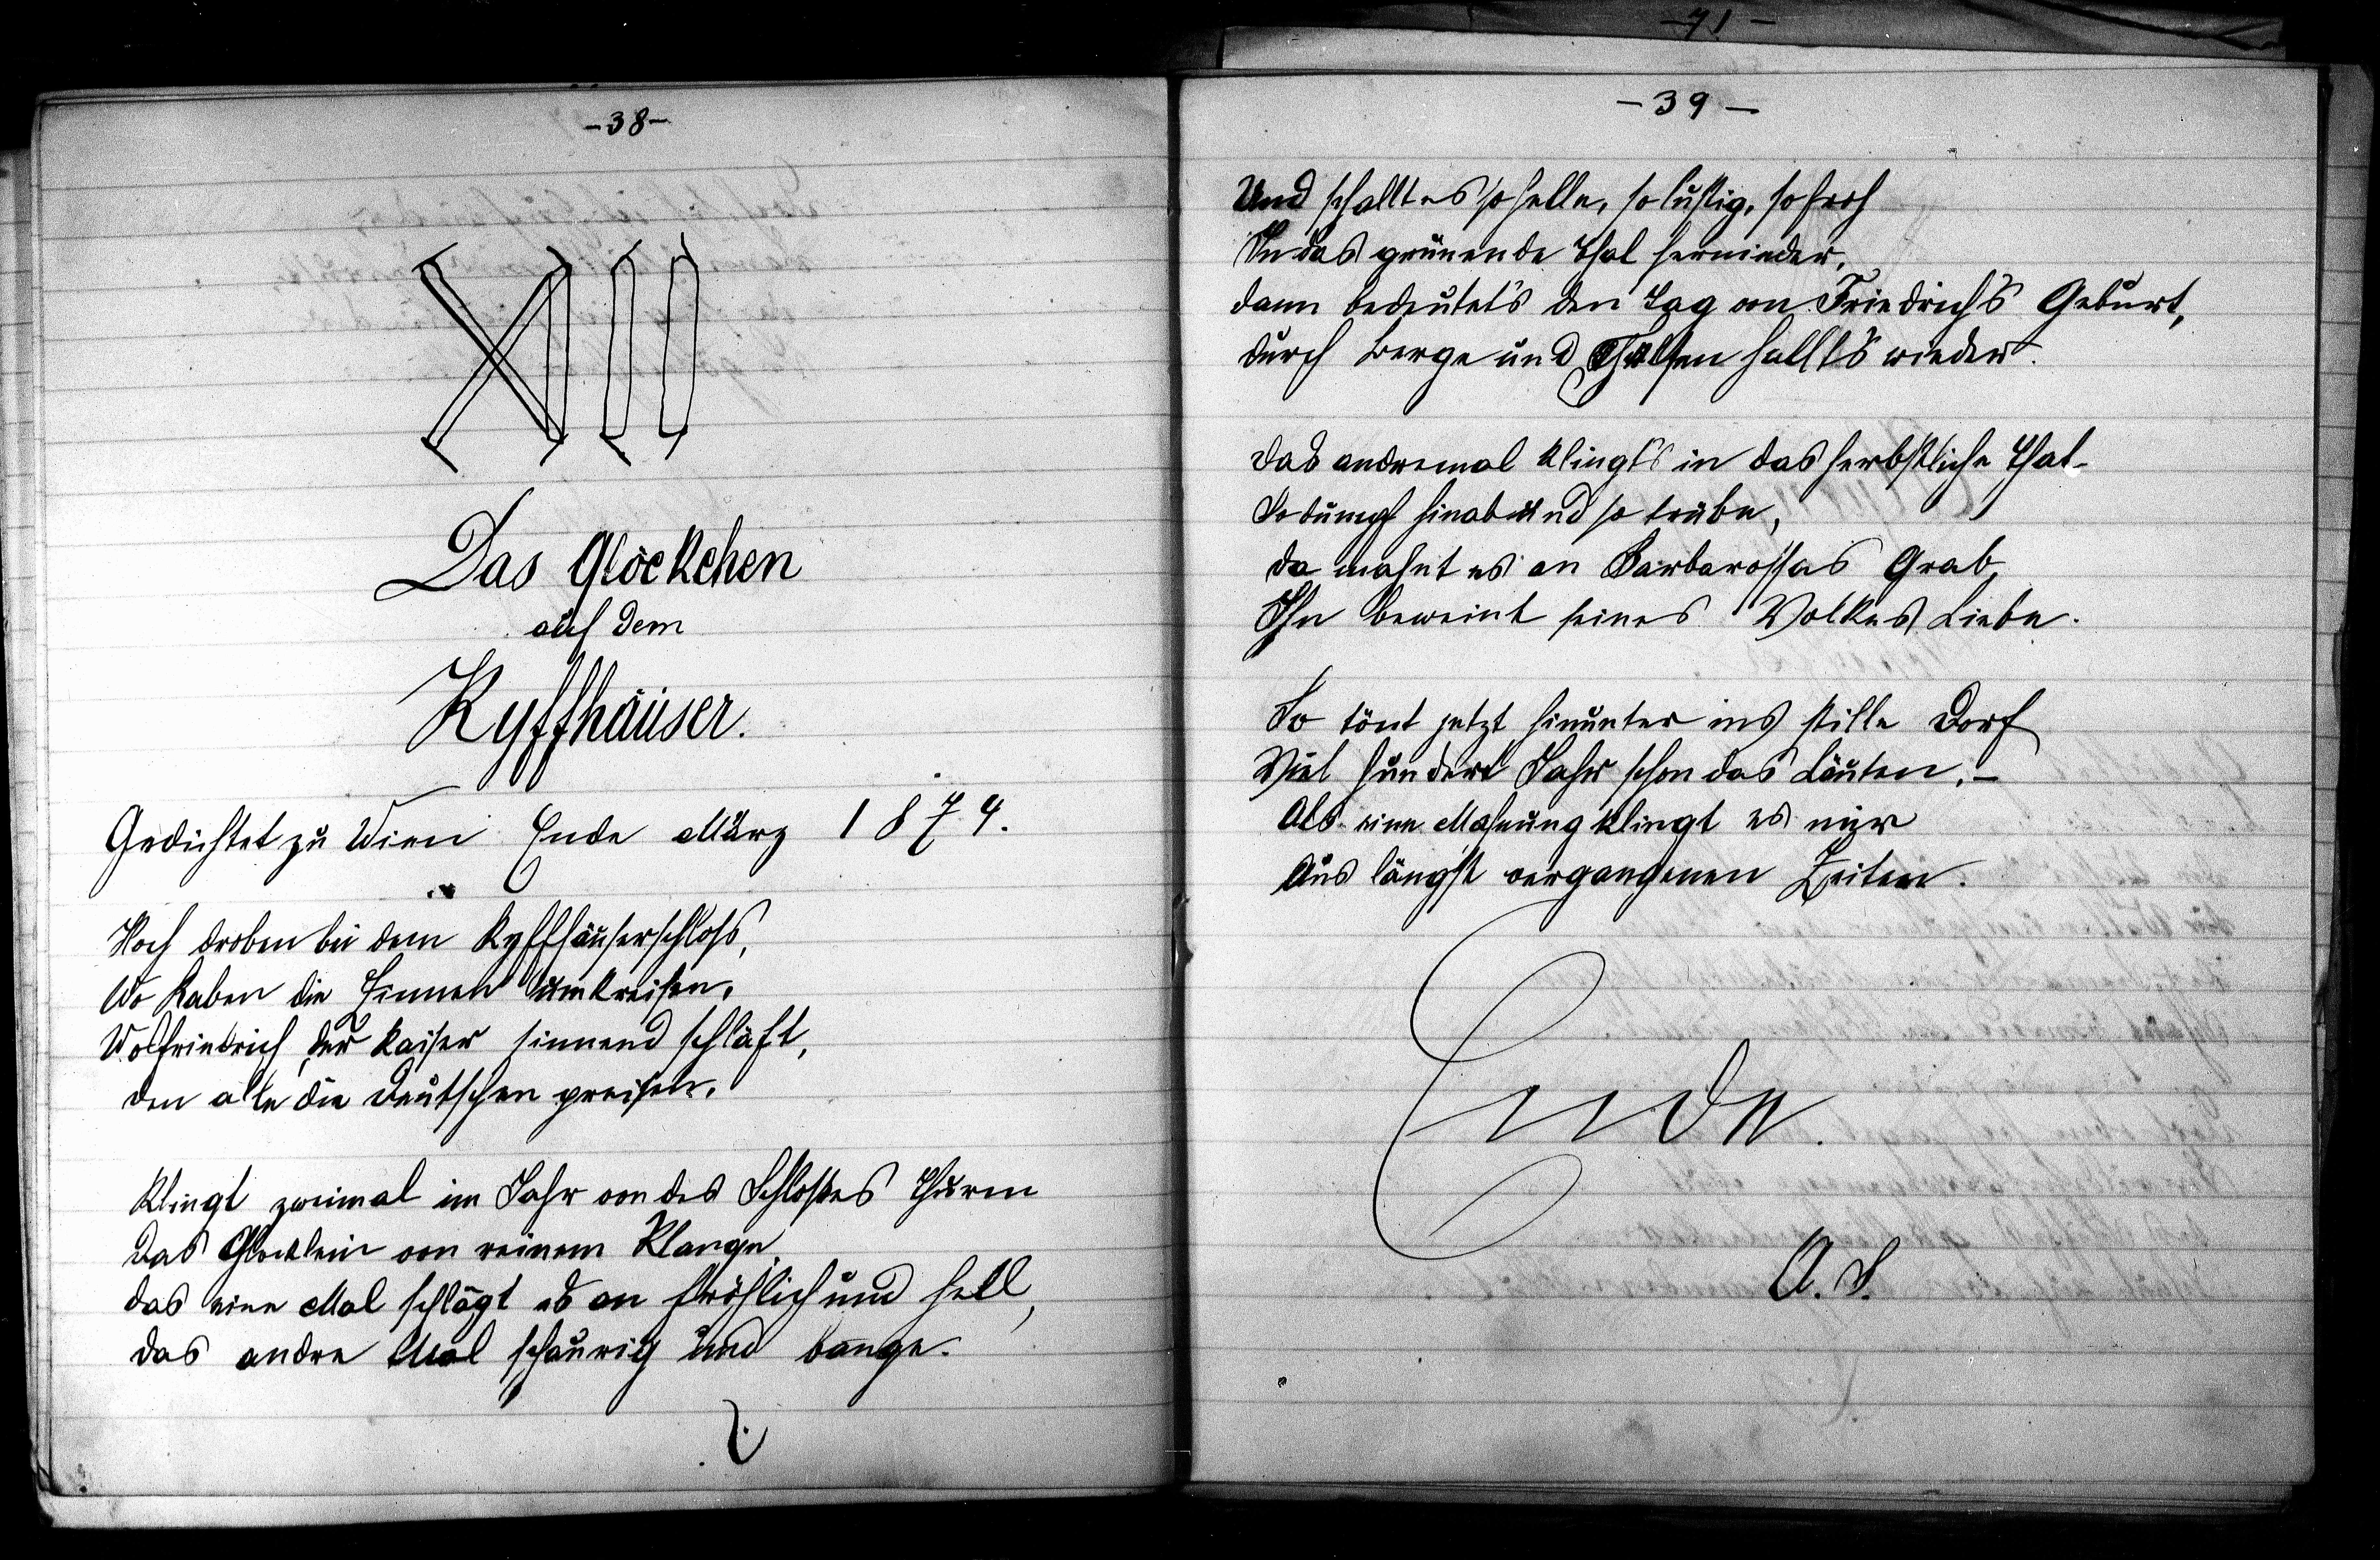 -38-
XII
Das Glöckchen
auf dem
Kyffhäuser.
Gedichtet zu Wien Ende März 1874.
Hoch droben bei dem Kyffhäuserschloss,
Wo Raben die Zinnen umkreisen,
Wo Friedrich der Kaiser sinnend schläft,
den alle die Deutschen preisen,
Klingt zweimal im Jahr von des Schlosses Thurm
Das Glöcklein von reinem Klange,
das eine Mal schlägt es an fröhlich und hell,
das andre Mal schaurig und bange.
-41-
-39-
Und schallt es so helle, so lustig, so froh
In das grünende Thal hernieder,
dann bedeutet's den Tag von Friedrich's Geburt,
durch Berge und hallt's wieder.
das andremal klingt's in das herbstliche Thal-
So dumpf hinab und so trübe,
da mahnt es an Barbarossas Grab,
Ihn beweint seines Volkes Liebe.
So tönt jetzt hinunter ins stille Dorf
Viel hundert Jahr schon das Läuten,-
Als eine Mahnung klingt es mir
Aus längst vergangenen Zeiten.
Ende.
A. S.